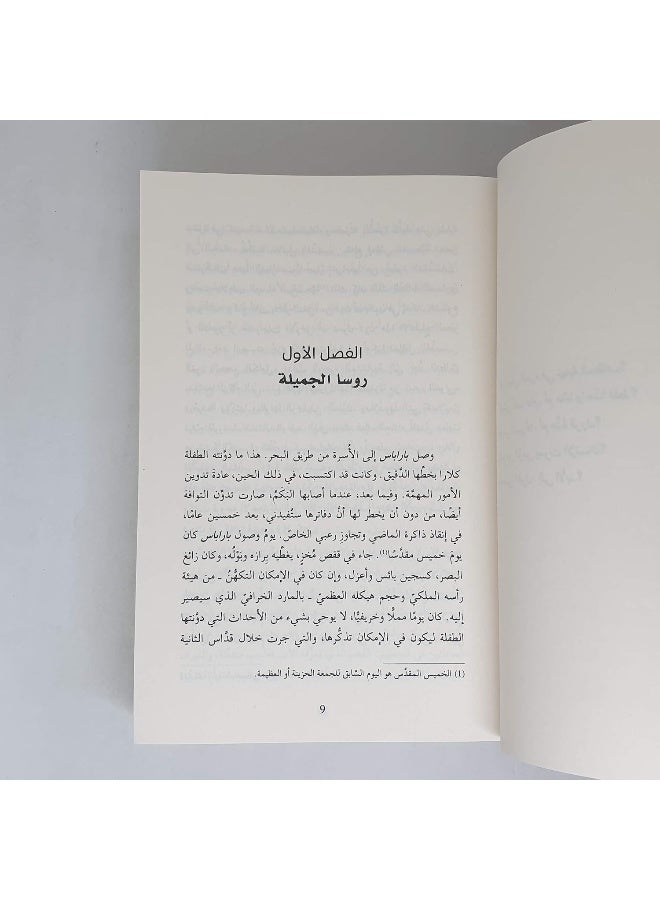 الفصل الأول
روسا الجميلة
وصل باراباس إلى الأُسرة من طريق البحر. هذا ما دوَّنته الطفلة
كلارا بخطِّها الدَّقيق. وكانت قد اكتسبت، في ذلك الحين، عادةَ تدوين
الأمور المهمَّة. وفيما بعد، عندما أصابها البَكَمُ، صارت تدوِّن التوافهَ
أيضًا، من دون أن يخطر لها أنَّ دفاترها ستُفيدني، بعد خمسين عامًا،
في إنقاذ ذاكرة الماضي وتجاوز رعبي الخاصّ. يومُ وصول باراباس كان
يومَ خميس مقدَّسًا(1). جاء في قفص مُخزٍ، يغطِّيه بِرازه وبَوْلُه، وكان زائغ
البصر، كسجين بائس وأعزل، وإن كان في الإمكان التكهُّنُ ـ من هيئة
رأسه الملكيّ وحجم هيكله العظميّ ـ بالمارد الخرافيّ الذي سيصير
إليه. كان يومًا مملًّا وخريفيًّا، لا يوحي بشيء من الأحداث التي دوَّنتها
الطفلة ليكون في الإمكان تذكُّرها، والتي جرت خلال قدَّاس الثانية
(1) الخميس المقدَّس هو اليوم السَّابق للجمعة الحزينة أو العظيمة.
9